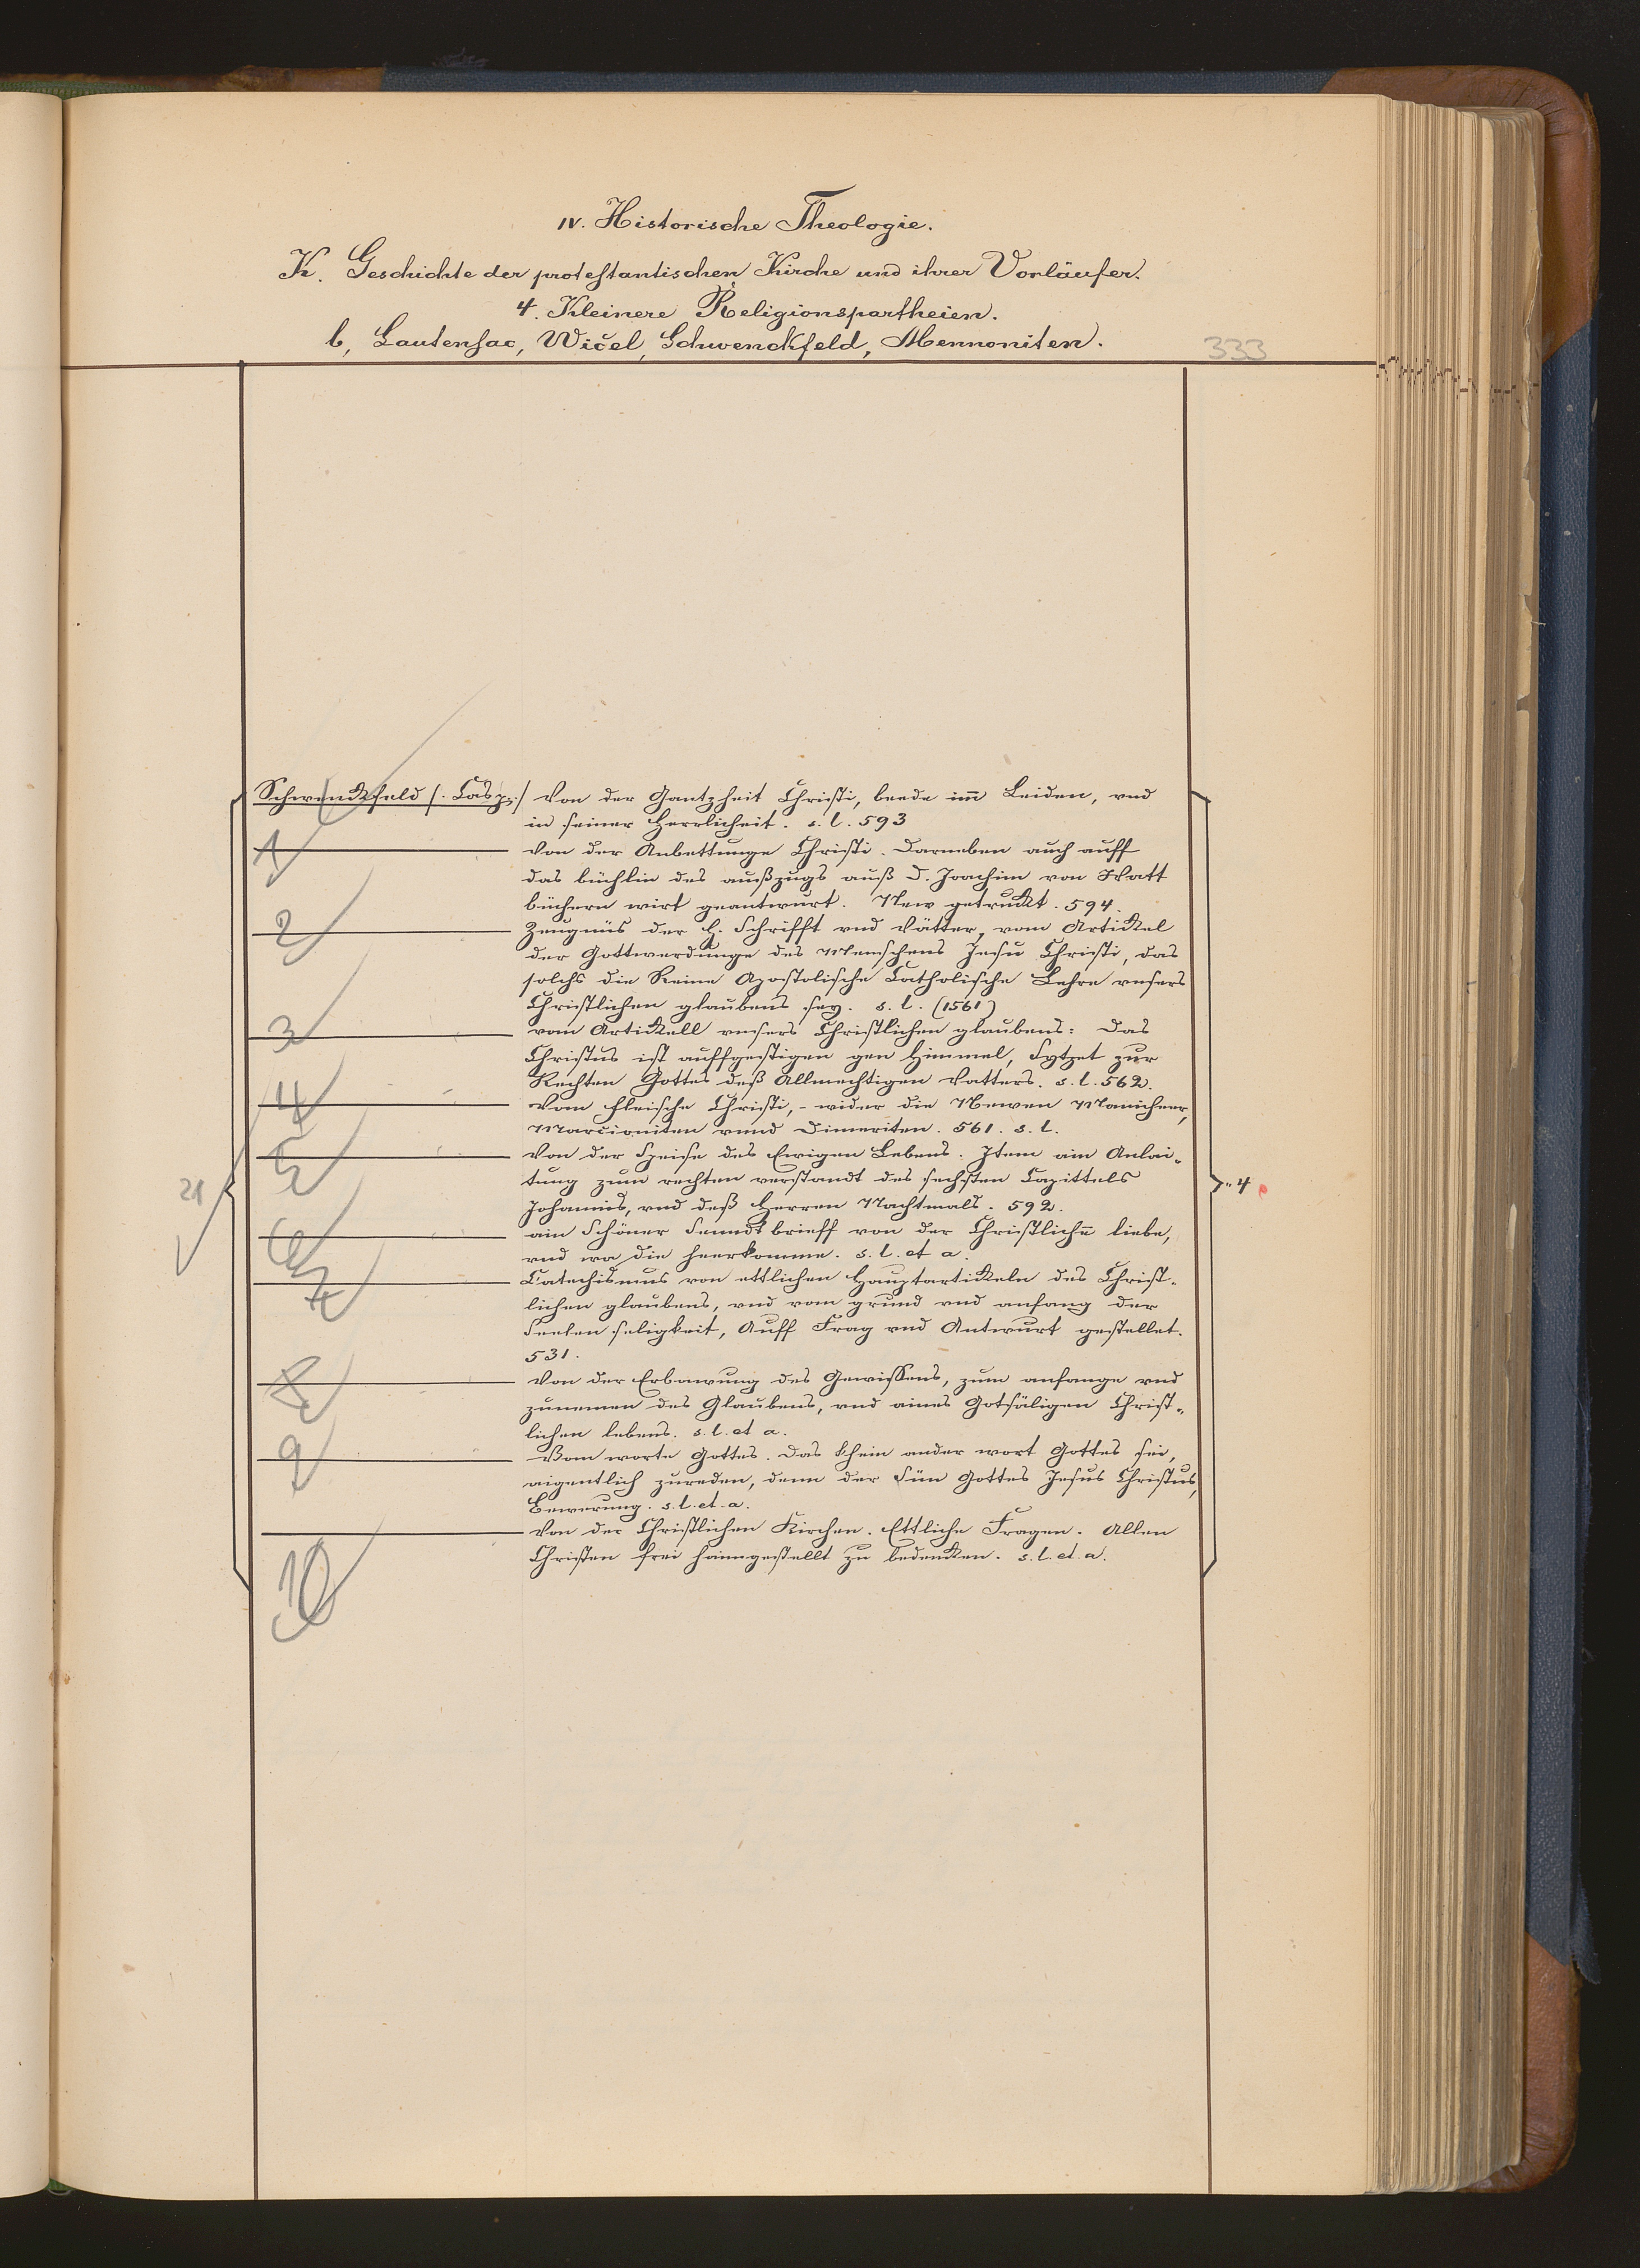 IV. Historische Theologie.
K. Geschichte der protestantischen Kirche und ihrer Vorläufer.
4. Kleinere Religionspartheien.
b, Lautensac, Wicel, Schwenckfeld, Mennoniten.
333
Schwenckfeld /: Casp :/ Von der Gantzheit Christi, beede im̄ Leiden, vnd
in seiner Herrlicheit. s. l. 593
1 Von der Anbettunge Christi. Darneben auch auff
das büchlin des außzugs auß D. Joachim von Watt
büchern wirt geantwurt. New getruckt. 594.
2 Zeugnüs der H. Schrifft vnd Vätter, vom Artickel
der Gottwerdunge des Menschens Jesu Christi, das
solchs die Reine Apostolische Catholische Lehre vnsers
Christlichen glaubens sey. s. l. (1561)
3 vom Artickell vnsers Christlichen glaubens: Das
Christus ist auffgestigen gen Himmel, Sytzet zur
Rechten Gottes deß Allmechtigen Vatters. s. l. 562.
4 Vom fleische Christi, - wider die Newen Manicheer,
Marcioniten vnnd Dimeriten. 561. s. l.
5 Von der Speise des Ewigen Lebens. Item ain Anlai-
tung zum rechten verstandt des sechsten Capittels
Johannis, vnd deß Herren Nachtmals. 592.
6 ain Schöner Senndtbrieff von der Christlichn̄ liebe,
vnd wa die heerkomme. s. l. et a.
7 Catechismus von ettlichen Hauptartickeln des Christ-
lichen glaubens, vnd vom grund vnd anfang der
Seelen seligkeit, Auff Frag vnd Antwurt gestellet.
531.
8 Von der Erbawung des Gewissens, zum anfange vnd
zunemen des Glaubens, vnd aines Gotsäligen Christ-
lichen lebens. s. l. et a.
9 Vom worte Gottes. Das khein ander wort Gottes sei,
aigentlich zureden, denn der Sün Gottes Jesus Christus,
Bewerung. s. l. et. a.
10 Von der Christlichen Kirchen. Ettliche Fragen. Allen
Christen frei haimgestellt zu bedencken. s. l. et. a.
21
" 4